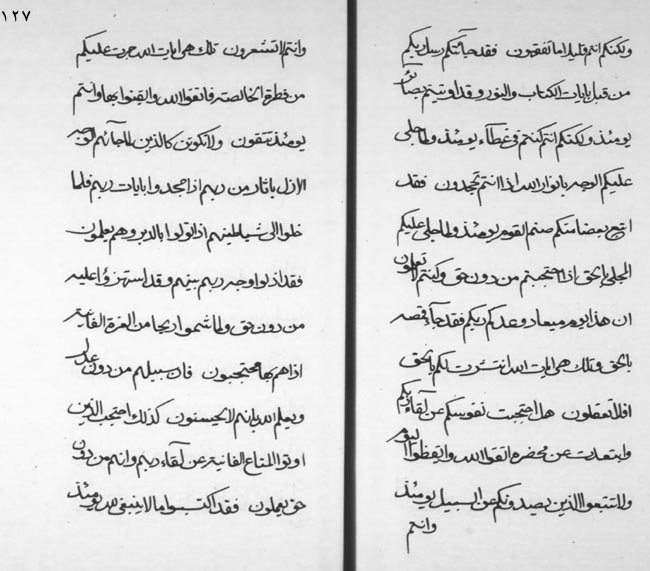 ولكنكم انتم قليلا ما تفقهون فقد جآئتكم رسل ربكم
من قبل بايات الكتاب والنور وقد اوتيتم بصائر
يومئذ ولكنكم انتم كنتم فى غطآء يومئذ ولما تجلى
عليكم الوجه بانوار الله اذا انتم تجحدون فقد
اتبع بعضا منكم صنم القوم يومئذ ولما تجلى عليكم
المجلى بالحق اذا احتجبتم من دون حق وكنتم تعلمون
ان هذا يوم ميعاد وعدكم ربكم فقد جآء قصصه
بالحق وتلك هى ايات الله انتشرت لكم بالحق
افلا تعقلون هل احتجبت نفوسكم عن لقآء ربكم
وابتعدت عن محضره اتقوا الله واتعظوا اليوم
ولا تتبعوا الذين يصدونكم عن السبيل يومئذ
وانتم
١٢٧
وانتم اتشعرون تلك هى ايات الله جرت عليكم
من فطرة الخالصه فاتقوا الله وايقنوا بها وانتم
يومئذ تتقون ولا تكونن كالذين لما جآئهم الوجه
الازل باثار من ربهم اذا جحدوا بايات ربهم فلما
خلوا الى شياطينهم اذا تولوا بالدبر وهم يعلمون
فقد اذوا وجه ربهم بينهم وقد استهزؤا عليه
من دون حق ولما شموا ريحا من الغرة الفانيه
اذا هم بها محتجبون فان سبيلهم من دون عدل
ويعلم الله بانهم لا يحسنون كذلك احتجب الذين
اوتوا المتاع الفانية عن لقآء ربهم وانهم من دون
حق يعملون فقد اكتسبوا ما لا ينبغى لاحد يومئذ